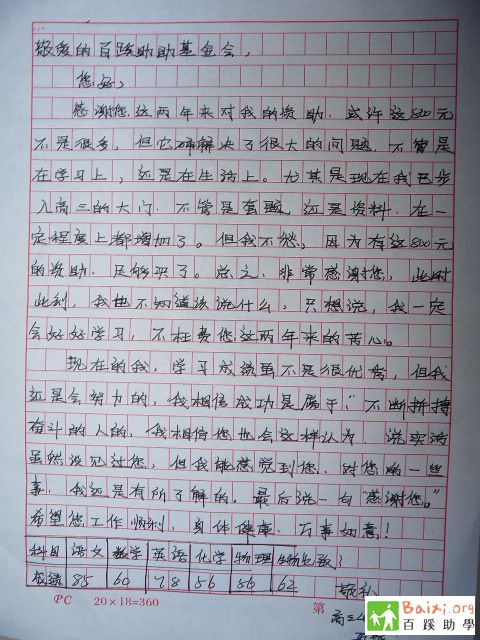 敬爱的百蹊助助基金会，
您好，
感谢您这两年来对我的资助．或许这800元
不是很多，但它确解决了很大的问题．不管是
在学习上，还是在生活上。尤其是现在我已步
入高三的大门．不管是套题，还是资料．在一
定程度上都增加了。但我不愁，因为有这800元
的资助．足够平了。总之．非常感谢您，此时
此刻，我也不知道该说什么，只想说，我一定
会好好学习，不枉费您这两年来的苦心。
现在的我，学习成绩虽不是很优秀，但我
还是会努力的，我相信成功是属于"不断拼搏
奋斗的人的．我相信您也会这样认为．说实话
虽然没见过您，但我能感觉到您．对您的一些
事．我还是有所了解的，最后说一句"感谢您。"
希望您工作顺利．身体健康．万事如意！
科目 语文 数学 英语 化学 物理 生物
成绩 85 60 78 56 56 62
敬礼
PC 20×18=360 第
高三4
Baixi.org
百蹊助學